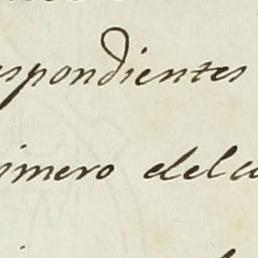 espondientes
imero del